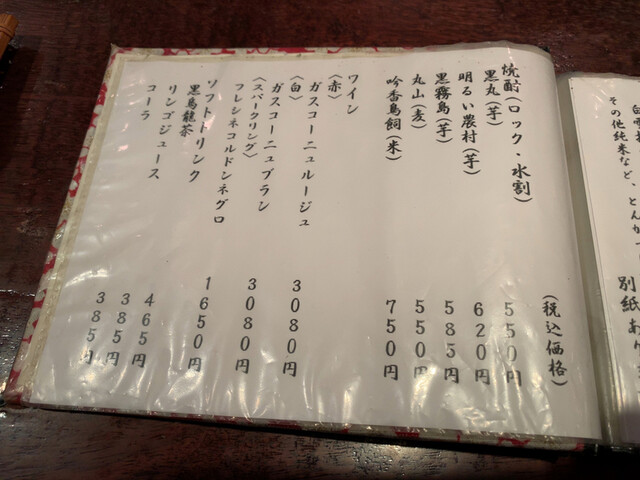 白雪
その他純米など、とんか
別紙あり
焼酎(ロック・水割) (税込価格)
黒丸(芋) 550円
明るい農村(芋) 620円
黒霧島(芋) 585円
丸山(麦) 550円
吟香鳥飼(米) 750円
ワイン
〈赤〉
ガスコーニュルージュ 3080円
〈白〉
ガスコーニュブラン 3080円
〈スパークリング〉
フレシネコルドンネグロ 1650円
ソフトドリンク
黒烏龍茶 465円
リンゴジュース 385円
コーラ 385円